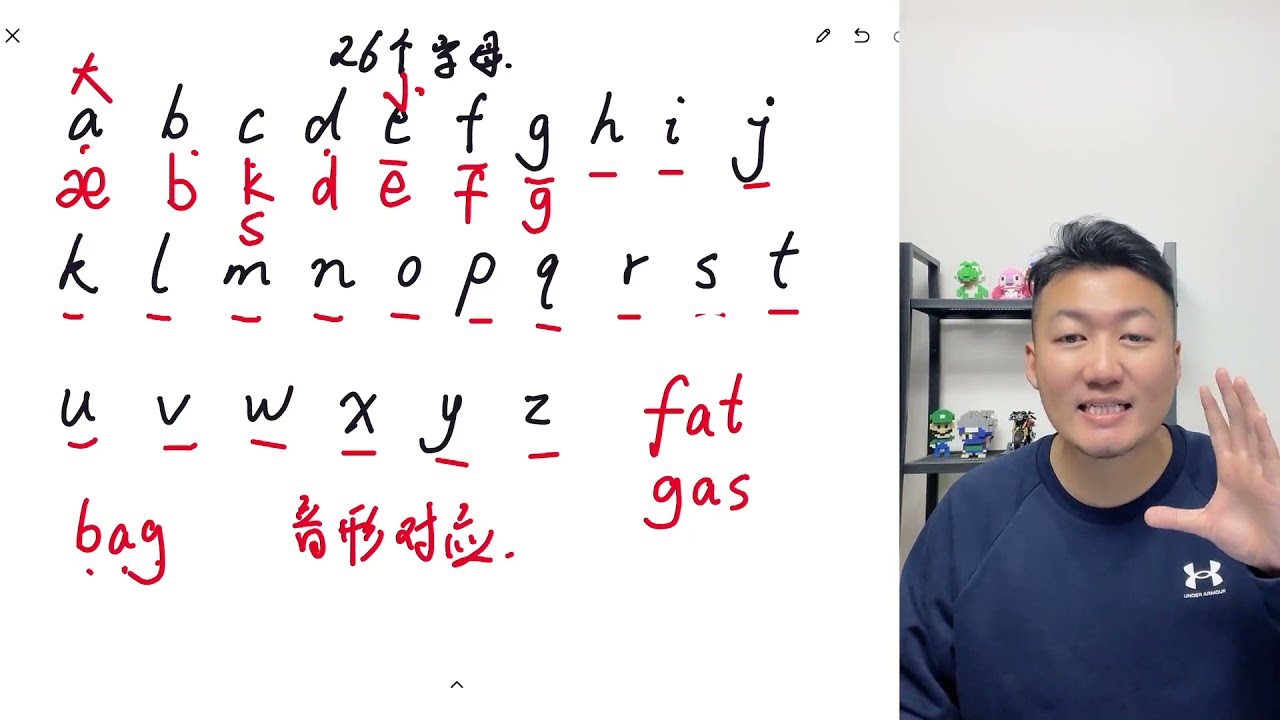 26个字母.
大
a b c d e f g h i j
æ b k d e f g
s
k l m n o p q r s t
u v w x y z
fat
gas
bag 音形对应.
UNDER ARMOUR